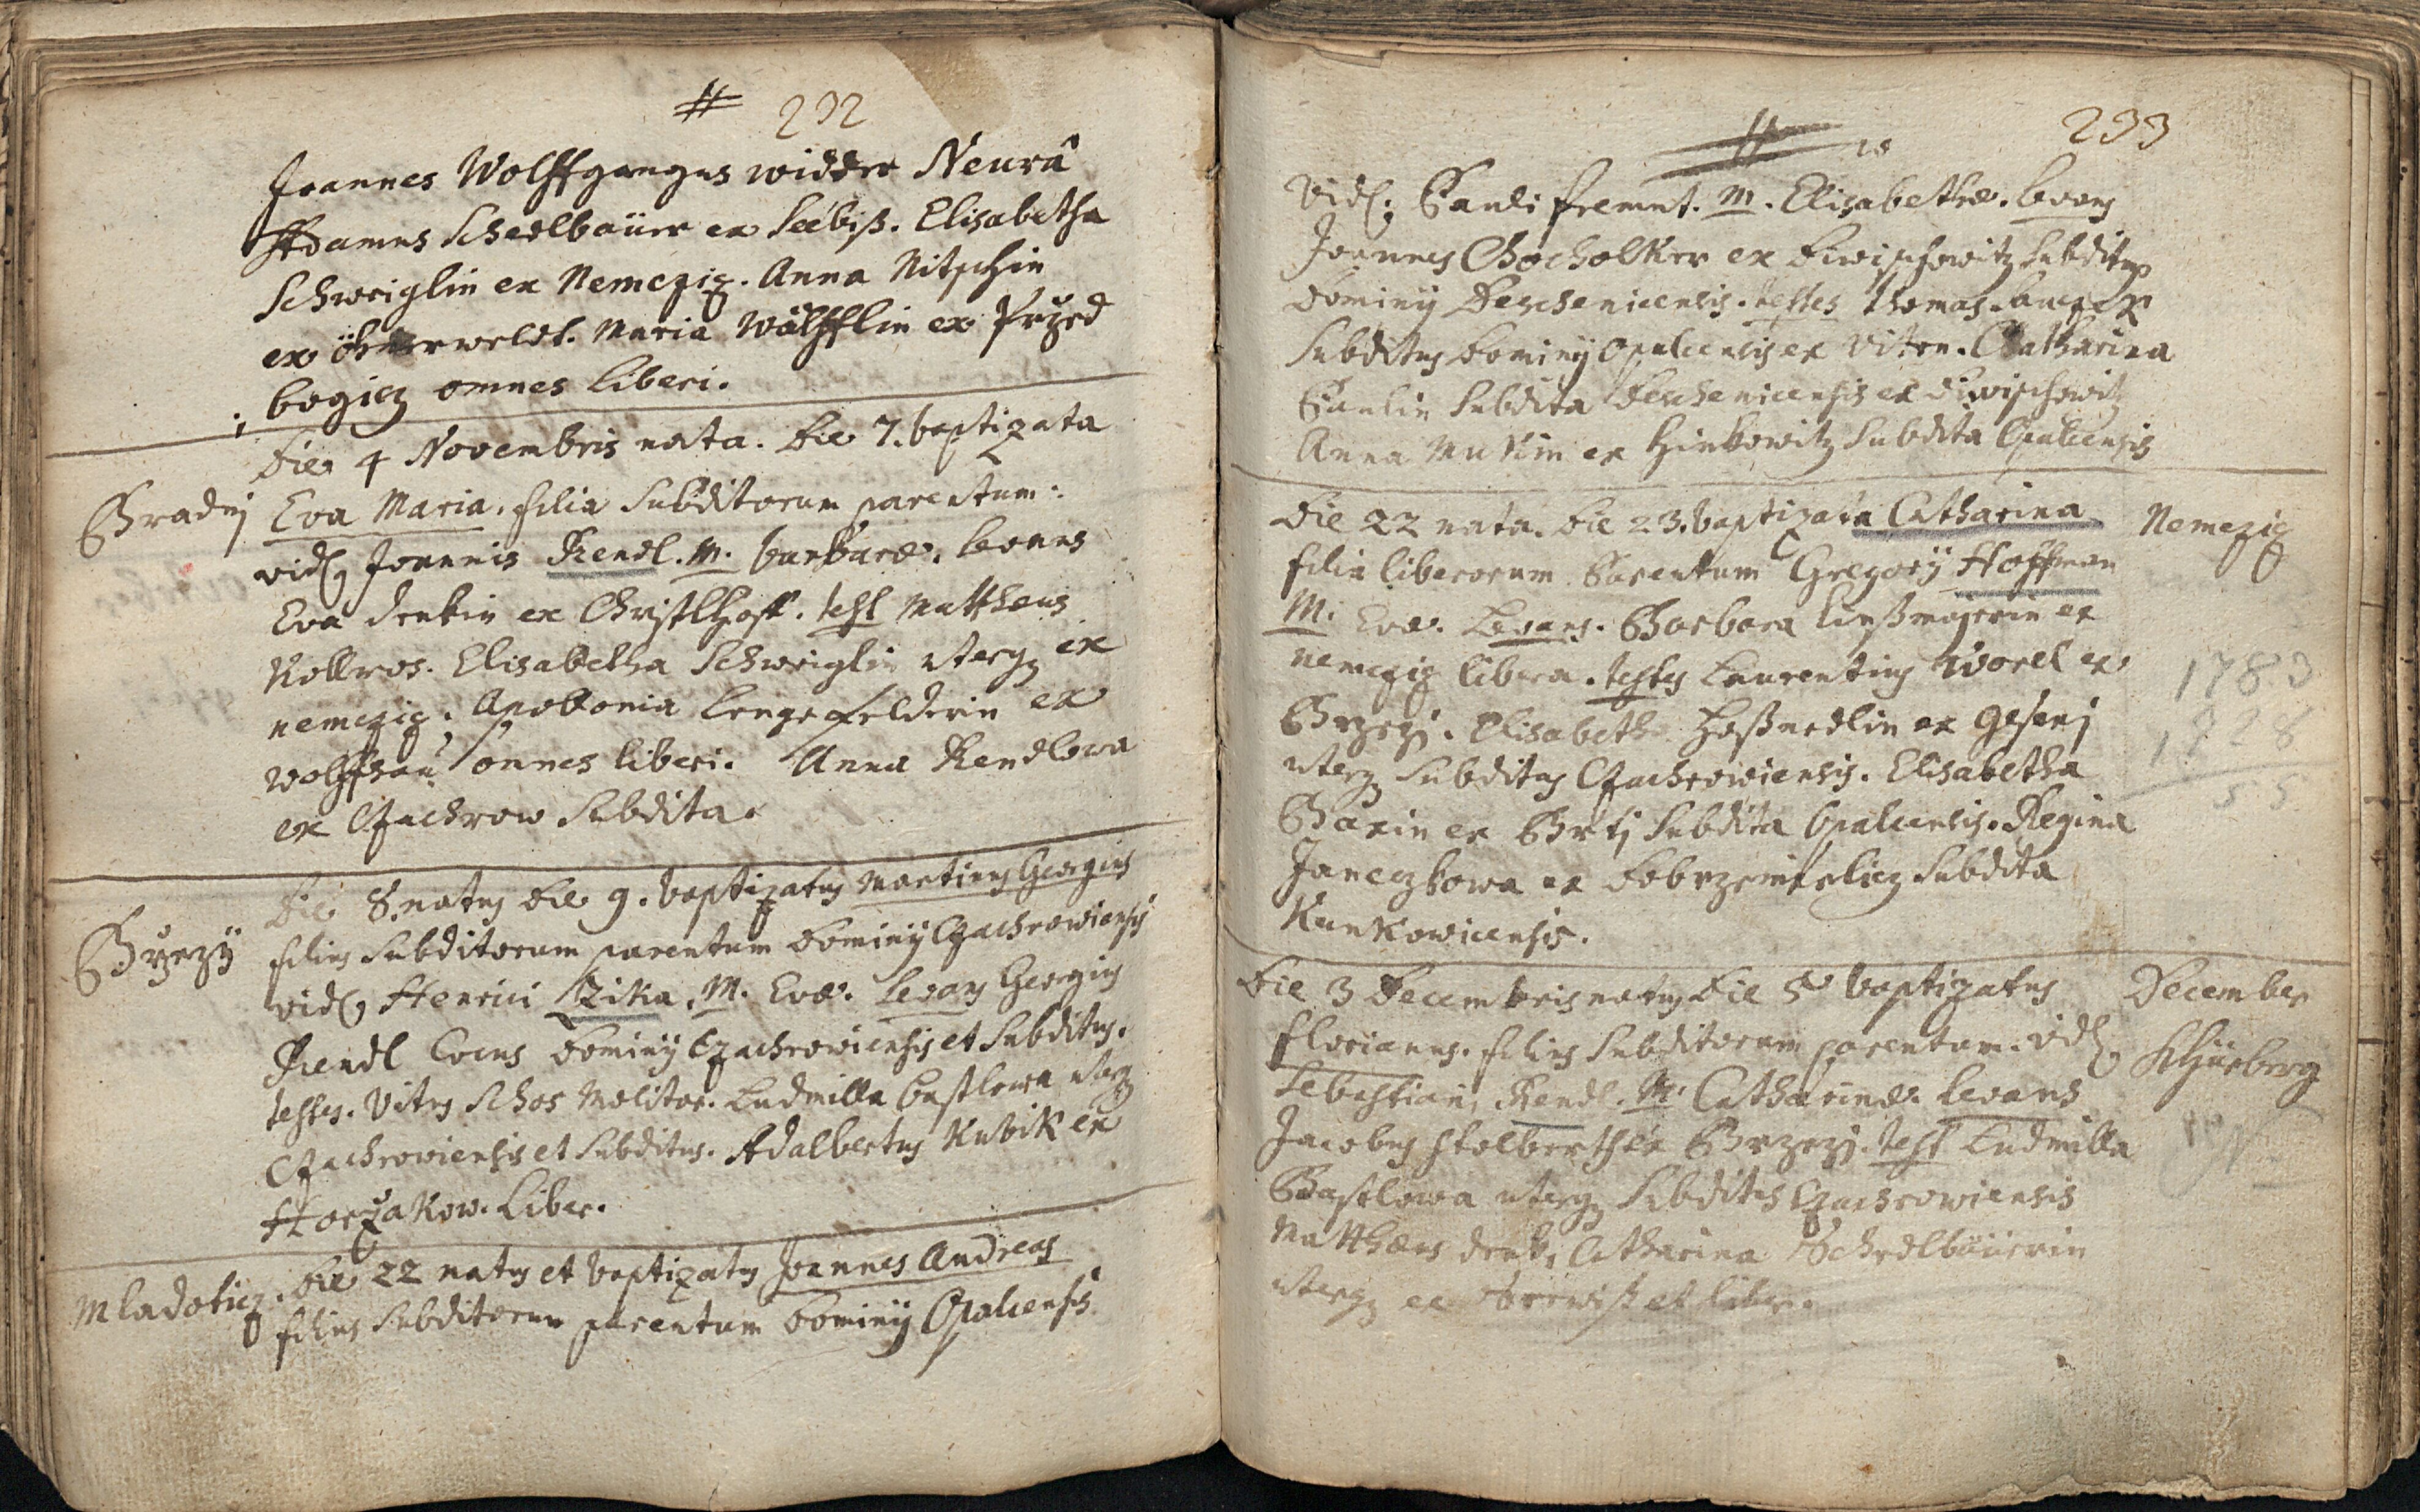 # 232
Joannes Wolffgangus widder Neurn
Adamus Schedlbaüer ex Seebiß. Elisabetha
Schweiglin ex Nemczig. Anna Nitschin
ex Maria Wälfflin ex Przed
bogicz omnes liberi.
Die 4 Novembris nata. Die 7. baptizata
Bradnj Eva Maria. filia subditorum parentum.
vidz Joannis Rendl. M. barbarae. levans
Eva denkin ex Christlhoff. test Matthaeus
Kollros. Elisabetha Schweiglin uterqz ex
nemczig. Apollonia Lengefelderin ex
Wolffsau omnes liberi. Anna Rendlowa
ex Czachrow subdita.
Die 8. natus Die 9. baptizatus Martinus Georgius
Brzezÿ filius subditorum parentum Dominÿ Czachrowiensis
vidz Henrici Zika. M. Evae. Levans Georgius
Rendl Cocus Dominÿ Czachrowiensis et subditus.
testes. Vitus Schos Molitor. Ludmilla bastlowa uterqz
Czachrowiensis et subditus. Adalbertus Kubik ex
Horzakow. Liber.
Mladoticz. Die 22 natus et baptizatus Joannes Andreas
filius subditorum parentum Dominÿ Opalcensis
233
vidz Pauli M. Elisabethae. levans
Joannes Chocholker ex Diwischowitz subditus
Dominÿ Deschenicensis. testes Thomas
subditus Dominÿ Opalcensis ex Catharina
Paulin subdita Deschenicensis ex Diwischowitz
Anna ex Hinkowitz subdita Opalcensis
Die 22 nata. Die 23. baptizata Catharina Nemczig
filia liberorum Parentum Gregorÿ Hoffman
M. Evae. Levans. Barbara ex
nemczig libera. testes Laurentius Worel ex
Brzezj. Elisabetha ex Gesenj
uterqz subditus Czachrowiensis. Elisabetha
ex subdita Opalcensis. Regina
Janeczkowa ex subdita
Kunkowicensis.
1783
1728
55
Die 3 Decembris natus Die 5 baptizatus December
Florianus. filius subditorum parentum. vidz
Sebastiani Rendl. M. Catharinae levans
Jacobus ex Brzezj. test Ludmilla
Bastlowa uterqz subditus Czachrowiensis
Matthaeus denk, Catharina Schedlbaüerin
uterqz ex et liber.